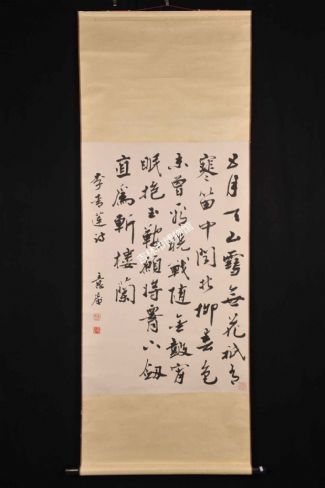 五月天山雪無花祇有
寒笛中聞折柳春色
未曾看曉戰隨金鼓宵
眠抱玉鞍願將腰下劍
直爲斬樓蘭
李青蓮詩